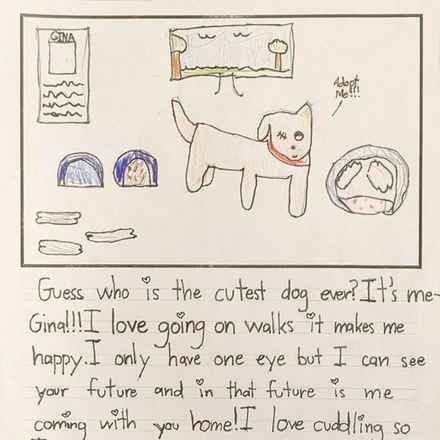 GINA
Adopt
Me!!!
Guess who is the cutest dog ever? It's me-
Gina!!! I love going on walks it makes me
happy. I only have one eye but I can see
your future and in that future is me
coming with you home! I love cuddling so